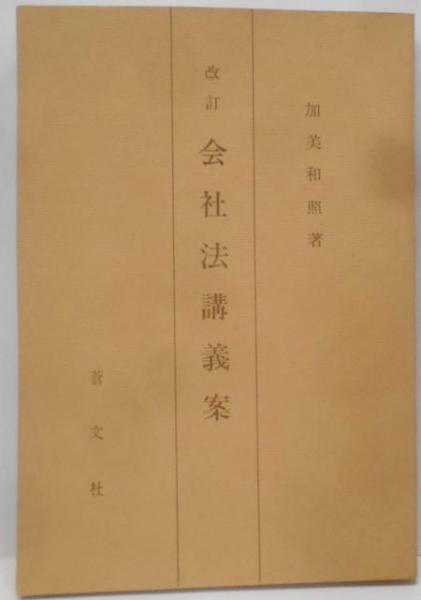 加美和照著
改訂
会社法講義案
蒼文社